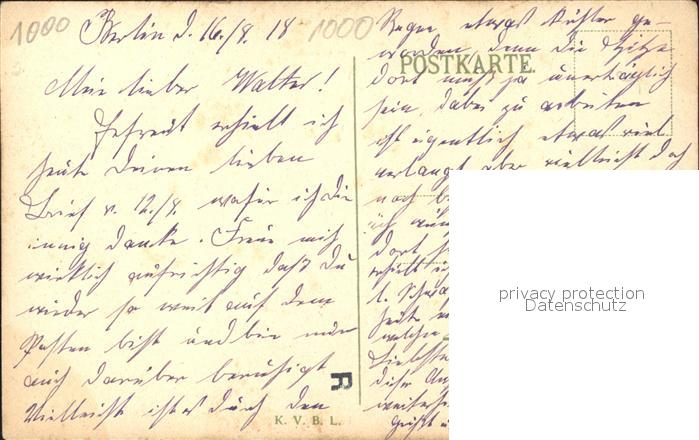 1000 Berlin d. 16./8. 18 1000
Mein lieber Walter!
Erfreut erhielt ich
heute Deinen lieben
Brief v. 12./8. wofür ich Dir
innig danke. Freue mich
wirklich aufrichtig daß Du
wieder so weit auf dem
Posten bist und bin nun
auch darüber beruhigt
Vielleicht ist es durch den
K. V. B. L.
R
Regen etwas kühler ge-
worden, denn die Hitze
POSTKARTE
dort muß ja unerträglich
sein, dabei zu arbeiten
ist eigentlich etwas viel
verlangt, aber vielleicht doch
noch
dort
heute
welche
Liebste
privacy protection
Datenschutz